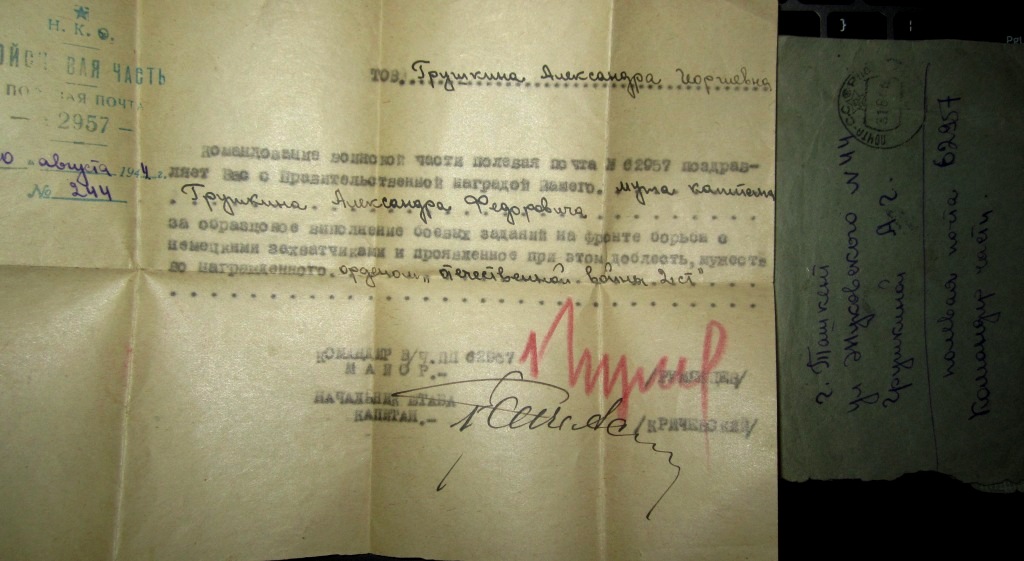 Н. К. О.
ВОЙСКОВАЯ ЧАСТЬ
ПОЛЕВАЯ ПОЧТА
2957 —
августа 1944 г.
№ 244
ТОВ. Грушкина Александра Георгиевна
Командование воинской части полевая почта N 62957 поздрав-
ляет Вас с Правительственной наградой Вашего. мужа капитана
Грушкина Александра Федоровича
за образцовое выполнение боевых заданий на фронте борьбы с
немецкими захватчиками и проявленное при этом доблесть, мужеств
во награжденного. орденом „Отечественной войны 2 ст"
КОМАНДИР В/Ч.ПП 62957
МАЙОР.-
НАЧАЛЬНИК ШТАБА
КАПИТАН.- /КРИЧЕВСКИЙ/
г. Ташкент
ул Жуковского N 44
Грушкиной А. Г.
полевая почта 62957
Командир части.
}